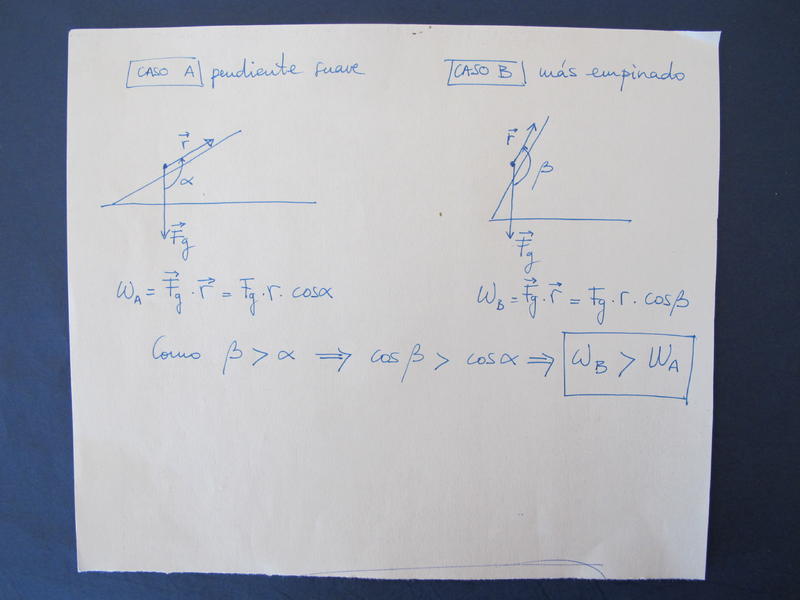 CASO A pendiente suave
CASO B más empinado
r⃗
α
F⃗g
r⃗
β
F⃗g
W_A = F⃗g · r⃗ = Fg · r · cosα
W_B = F⃗g · r⃗ = Fg · r · cosβ
Como β > α ⇒ cosβ > cosα ⇒ W_B > W_A